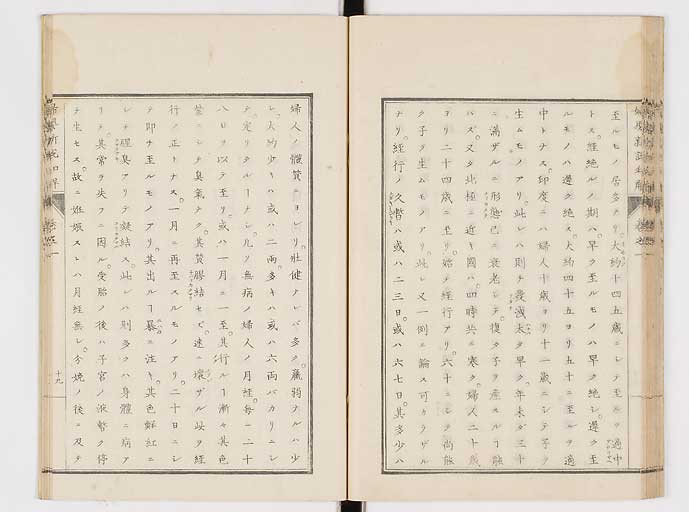 至ルモノ居多ナリ。大約十四五歳ニシテ至ルヲ適中
トス。経絶ルノ期ハ早ク至ルモノハ早ク絶シ。遲ク至
ルモノハ遲ク絶ス。大約四十五ヨリ五十ニ至ルヲ適
中トナス。印度ニハ婦人十歳ヨリ十一歳ニシテ子ヲ
生ムモノアリ。此レハ則チ衰減太タ早ク。年未タ三十
ニ滿ザルニ形態已ニ衰老シテ。復タ子ヲ産スルﾄ能
ハズ。又タ北極ニ近キ國ハ。四時共ニ寒ク。婦人二十歳
ヨリ二十四歳ニ至リ。始テ経行アリ。六十ニシテ尚能
ク子ヲ生ムモノアリ。此レ又一例ニ論ス可カラザル
ナリ。経行ノ久暫ハ或ハ二三日。或ハ六七日。其多少ハ
婦人ノ體質ニヨレリ。壯健ナレバ多ク。羸弱ナルハ少
シ。大約少キハ或ハ二兩。多キハ或ハ六兩バカリニシ
テ。定リタルﾄナシ。凡リ無病ノ婦人ノ月経。毎一二十
八日ヲ以テ至リ。或ハ一月ニ一至。其行ルﾄ漸々其色
紫ニシテ臭氣ナク。其質膠結セズ。速ニ壞ザル此ヲ経
行ノ正トナス。一月ニ再至スルモノアリ。二十日ニシ
テ即チ至ルモノアリ。其出ルﾄ暴ニ注キ。其色鮮紅ニ
シテ。腥臭アリテ凝結ス。此レハ則多クハ身體ニ病ア
リテ。其常ヲ失フニ因ル。受胎ノ後ハ子宮ノ液暫ク停
テ生セス。故ニ姙娠スレハ月経無シ。分娩ノ後ニ及テ
十九